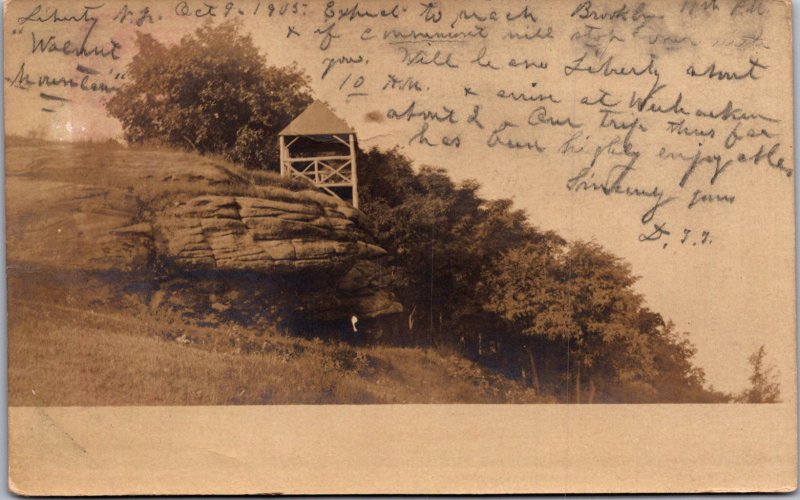 Liberty N.Y. Oct 9. 1905. Expect to reach Brooklyn 11th P.M.
& if convenient will stop over with
you. Will leave Liberty about
10 A.M. & arrive at Weehawken
about 2. Our trip thus far
has been highly enjoyable.
Sincerely yours
D. F. F.
"Walnut
Mountain"